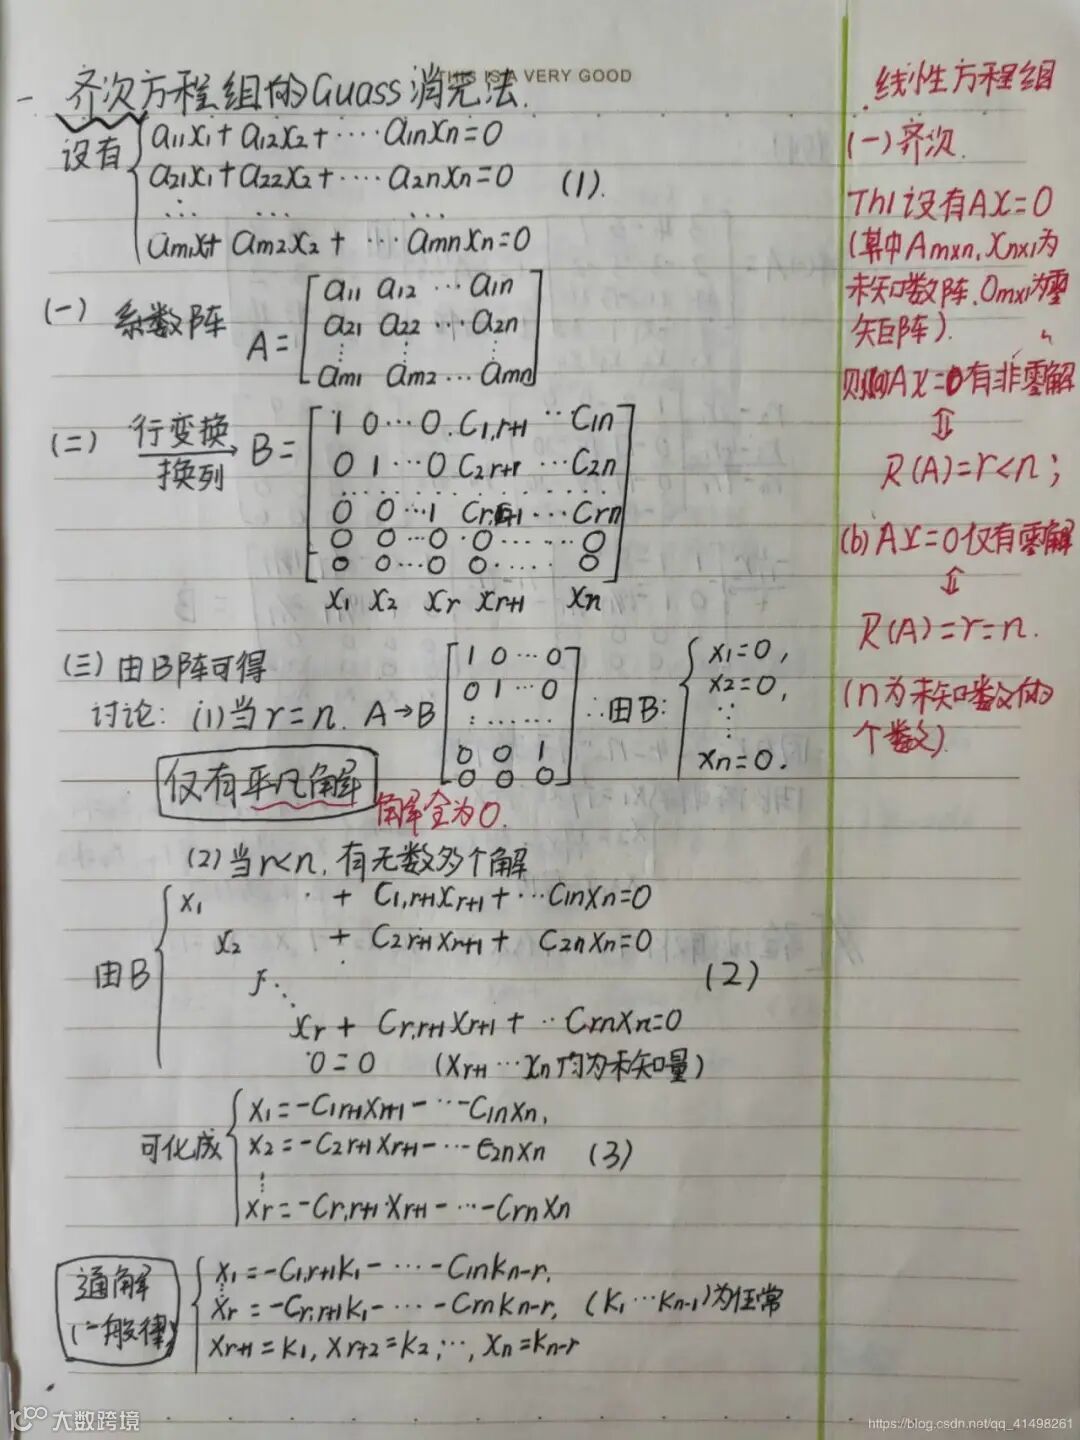 THIS IS A VERY GOOD
一 齐次方程组的Guass消元法.
设有
a11x1+ a12x2+ ····a1nxn=0
a21x1+a22x2+····a2nxn=0 (1).
··· ··· ···
am1x1+ am2x2+ ···amnxn=0
(一) 系数阵 A=
a11 a12 ···a1n
a21 a22 ···a2n
⋮ ⋮ ⋮
am1 am2 ···amn
(二) 行变换
换列 B=
1 0···0 C1,r+1 ··C1n
0 1···0 C2r+1 ···C2n
··················
0 0···1 Cr,r+1···Crn
0 0···0 ·0······0
0 0···0 0······0
x1 x2 xr xr+1 xn
(三) 由B阵可得
讨论: (1)当r=n. A→B
1 0···0
0 1···0
⋮······
0 0 1
0 0 0
∴由B:
x1=0,
x2=0,
⋮
xn=0.
仅有平凡解
解全为0.
(2)当r<n,有无数多个解
由B
x1 · + C1,r+1xr+1+···C1nxn=0
x2 + C2r+1xr+1+ C2nxn=0
(2)
xr + Cr,r+1xr+1+··Crnxn=0
0=0 (xr+1···xn均为未知量)
可化成
x1=-C1r+1xr+1-···-C1nxn,
x2=-C2r+1xr+1-···C2nxn (3)
⋮
xr=-Cr,r+1xr+1-···-Crnxn
通解
(一般解)
x1=-C1,r+1k1-····-C1nkn-r,
⋮
xr=-Cr,r+1k1-····-Crnkn-r, (k1···kn-1)为任常
xr+1=k1, xr+2=k2,···, xn=kn-r
线性方程组
(一)齐次.
Th1 设有AX=0
(其中Amxn, Xnx1为
未知数阵,0mx1为零
矩阵).
则(a)AX=0有非零解
⇕
R(A)=r<n;
(b)AX=0仅有零解
⇕
R(A)=r=n.
(n为未知数的
个数)
大数跨境
https://blog.csdn.net/qq_41498261